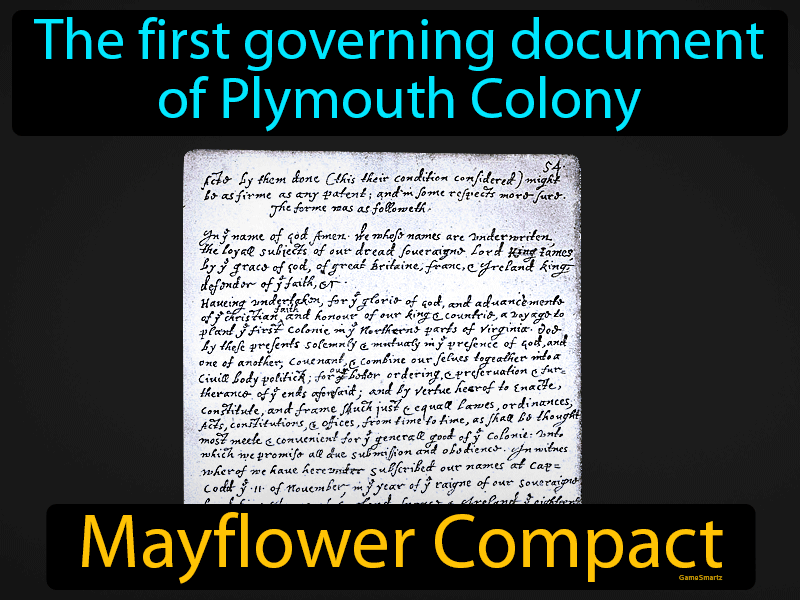 The first governing document
of Plymouth Colony
54
Acts by them done (this their condition considered) might
be as firme as any patent; and in some respects more sure.
The forme was as followeth.
In yͤ name of God Amen. We whose names are underwriten,
the loyall subjects of our dread soveraigne Lord King James
by yͤ grace of God, of great Britaine, franc, & Ireland king,
defender of yͤ faith, &c
Haveing undertaken, for yͤ glorie of God, and advancemente
of yͤ christian faith and honour of our king & countrie, a voyage to
plant yͤ first colonie in yͤ Northerne parts of Virginia. Doe
by these presents solemnly & mutualy in yͤ presence of God, and
one of another, covenant, & combine our selves togeather into a
Civill body politick; for our better ordering, & preservation & fur=
therance of yͤ ends aforesaid; and by vertue hearof to Enacte,
constitute, and frame shuch just & equall Lawes, ordinances,
Acts, constitutions, & offices, from time to time, as shall be thought
most meete & convenient for yͤ generall good of yͤ Colonie: unto
which we promise all due submission and obedience. In witnes
wherof we have hereunder subscribed our names at Cap=
Codd yͤ .11. of November, in yͤ year of yͤ raigne of our soveraigne
Mayflower Compact
GameSmartz